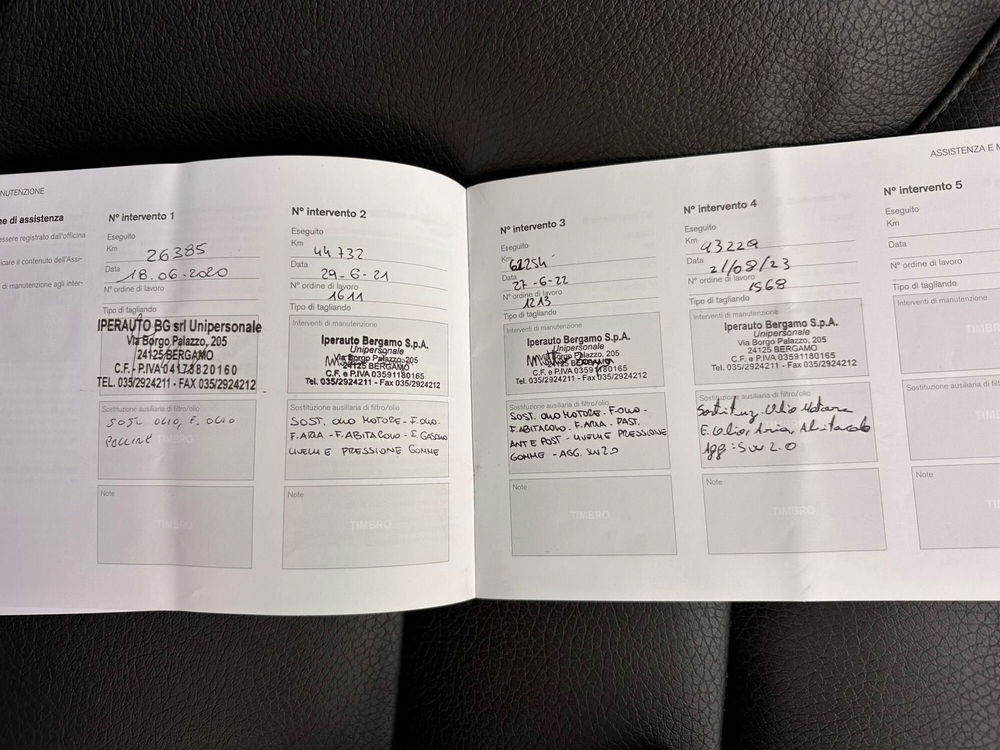 NUTENZIONE
ne di assistenza
essere registrato dall'officina
care il contenuto dell'Assi-
di manutenzione agli inter-
N° intervento 1
Eseguito
Km 26385
Data 18.06-2020
N° ordine di lavoro
Tipo di tagliando
IPERAUTO BG srl Unipersonale
Via Borgo Palazzo, 205
24125 BERGAMO
C.F. - P.IVA 04173820160
TEL. 035/2924211 - FAX 035/2924212
Sostituzione ausiliaria di filtro/olio
SOST. OLIO, F. OLIO
POLLINE
Note
TIMBRO
N° intervento 2
Eseguito
Km 44732
Data 29-6-21
N° ordine di lavoro
1611
Tipo di tagliando
Interventi di manutenzione
Iperauto Bergamo S.p.A.
Unipersonale
Via Borgo Palazzo, 205
24125 BERGAMO
C.F. e P.IVA 03591180165
Tel. 035/2924211 - Fax 035/2924212
Sostituzione ausiliaria di filtro/olio
SOST. OLIO MOTORE - F. OLIO -
F. ARIA - F. ABITACOLO - F. GASOLIO
LIVELLI E PRESSIONE GOMME
Note
TIMBRO
ASSISTENZA E M
N° intervento 3
Eseguito
Km 61254
Data 27-6-22
N° ordine di lavoro
1213
Tipo di tagliando
Interventi di manutenzione
Iperauto Bergamo S.p.A.
Unipersonale
Via Borgo Palazzo, 205
24125 BERGAMO
C.F. e P.IVA 03591180165
Tel. 035/2924211 - Fax 035/2924212
Sostituzione ausiliaria di filtro/olio
SOST. OLIO MOTORE - F. OLIO -
F. ABITACOLO - F. ARIA - PAST.
ANT E POST - LIVELLI E PRESSIONE
GOMME - AGG. SW 2.0
Note
TIMBRO
N° intervento 4
Eseguito
Km 93229
Data 21/08/23
N° ordine di lavoro
1568
Tipo di tagliando
Interventi di manutenzione
Iperauto Bergamo S.p.A.
Unipersonale
Via Borgo Palazzo, 205
24125 BERGAMO
C.F. e P.IVA 03591180165
Tel. 035/2924211 - Fax 035/2924212
Sostituzione ausiliaria di filtro/olio
Sostituz. Olio Motore
F. Olio, Aria, Abitacolo
Agg: SW 2.0
Note
TIMBRO
N° intervento 5
Eseguito
Km
Data
N° ordine di lavoro
Tipo di tagliando
Interventi di manutenzione
TIMBR
Sostituzione ausiliaria di filtro/olio
Note
TIMBR